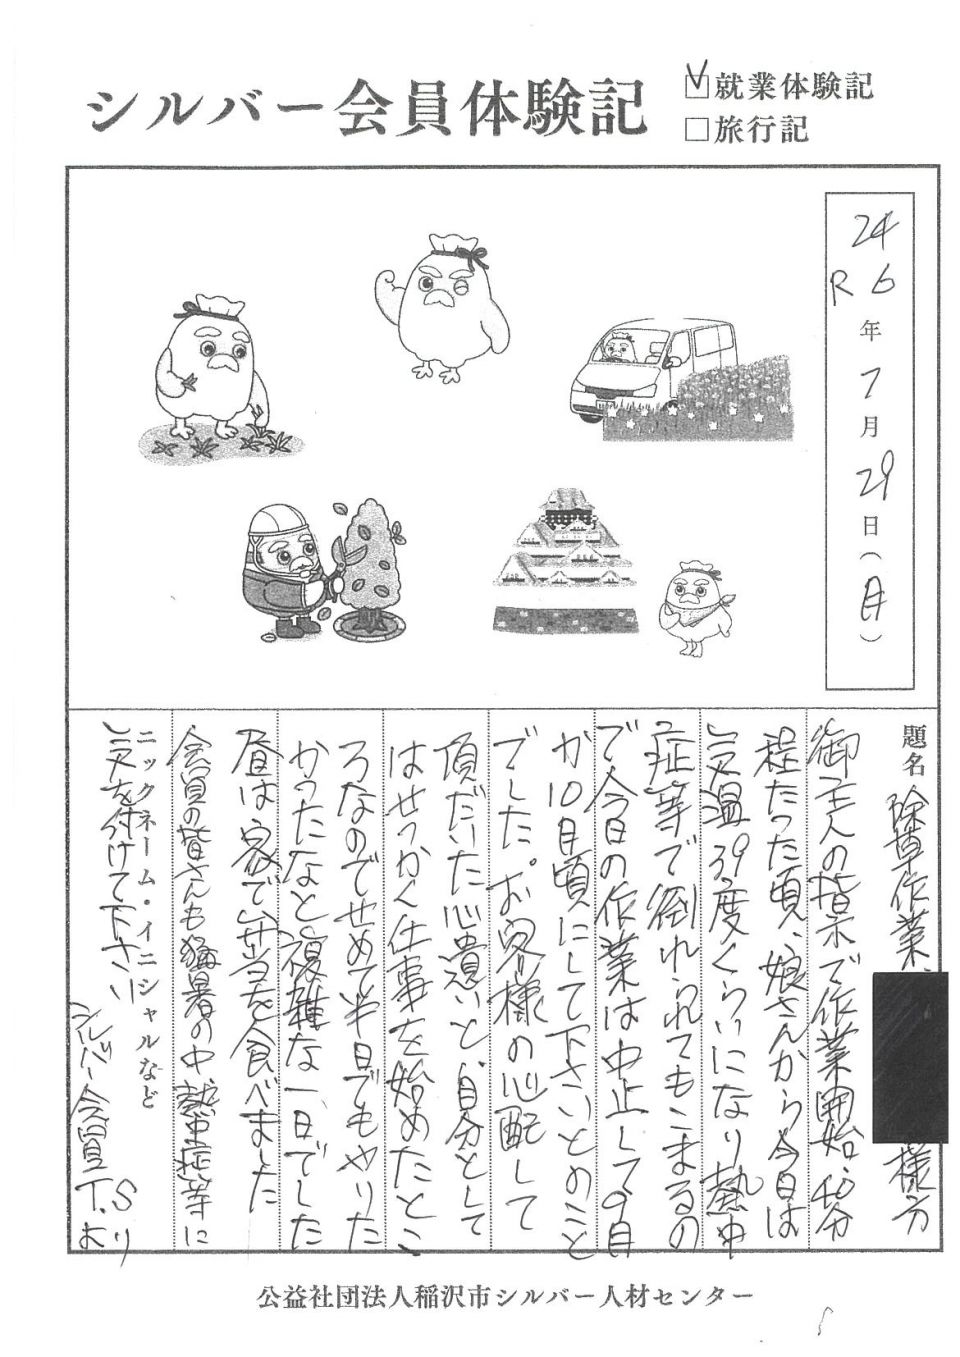 シルバー会員体験記
☑就業体験記
□旅行記
24
R6年7月29日(月)
題名 除草作業、様分
御主人の指示で作業開始、40分
程たった頃、娘さんから今日は
気温39度くらいになり熱中
症等で倒れられてもこまるの
で今日の作業は中止して9月
か10月頃にして下さいとのこと
でした。お客様の心配して
頂だいた心遣いと、自分として
はせっかく仕事を始めたとこ
ろなのでせめて半日でもやりた
かったなと複雑な一日でした
昼は家で弁当を食べました
会員の皆さんも猛暑の中熱中症等に
気を付けて下さい
ニックネーム・イニシャルなど
シルバー会員T.Sより
公益社団法人稲沢市シルバー人材センター